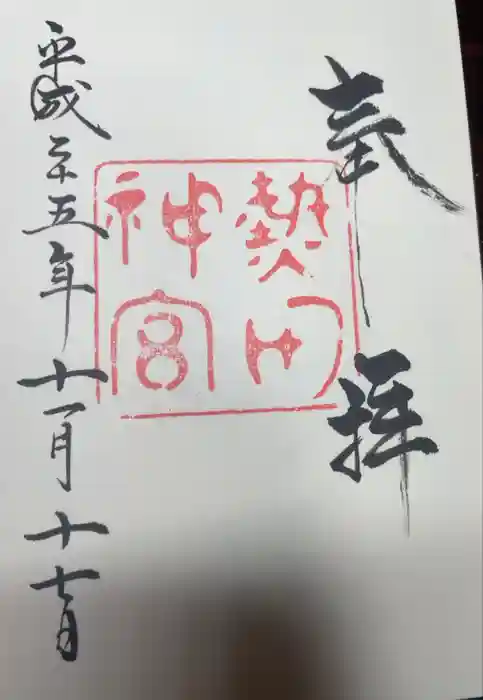 奉拝
熱田
神宮
平成二十五年十一月十七日